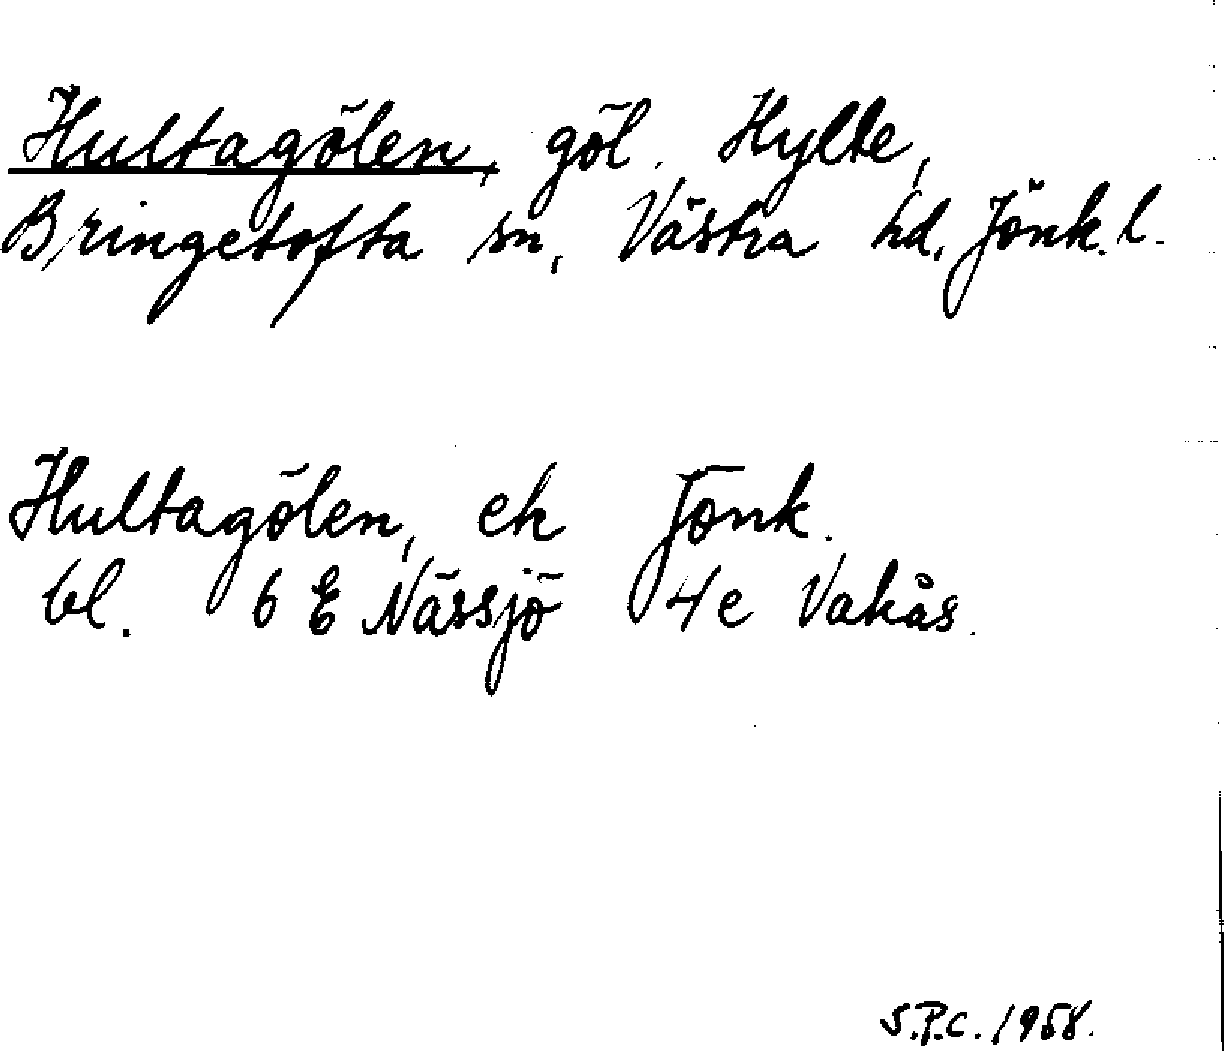 Hultagölen, göl. Hylte,
Bringetofta sn, Västra hd, Jönk. l.
Hultagölen, ek Jönk.
bl. 6 E Nässjö 4e Vakås.
S.P.C. 1958.